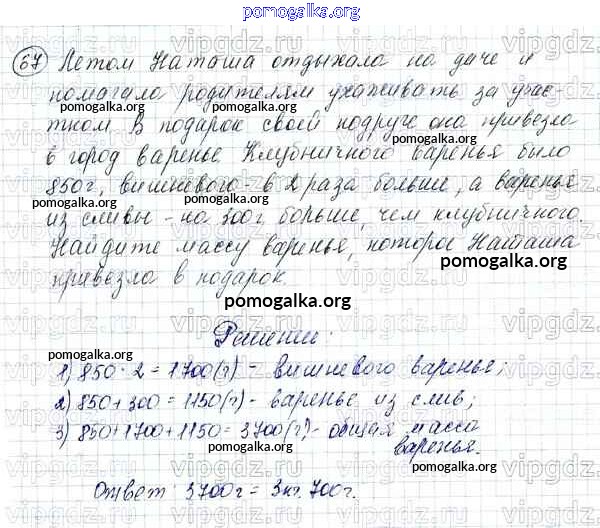 pomogalka.org
67 Летом Наташа отдыхала на даче и
помогала родителям ухаживать за учас-
тком. В подарок своей подруге она привезла
в город варенье. Клубничного варенья было
850г, вишневого - в 2 раза больше, а варенья
из сливы - на 300г больше, чем клубничного.
Найдите массу варенья, которое Наташа
привезла в подарок.
pomogalka.org
Решение:
1) 850 · 2 = 1700(г) - вишневого варенье;
2) 850 + 300 = 1150(г) - варенье из слив;
3) 850 + 1700 + 1150 = 3700(г) - общая масса
варенья.
Ответ: 3700г = 3кг. 700г.